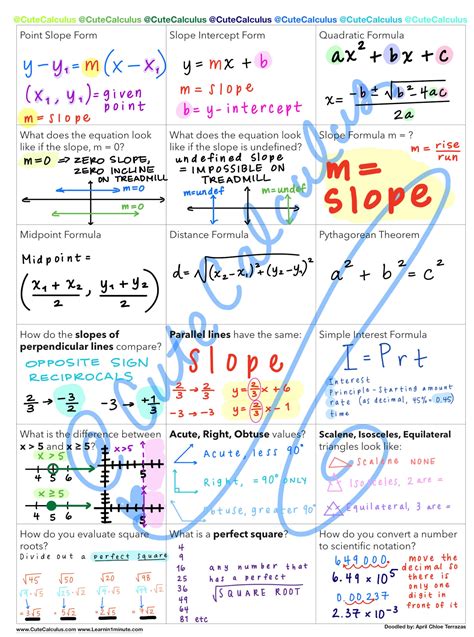 @CuteCalculus @CuteCalculus @CuteCalculus @CuteCalculus @CuteCalculus @CuteCalculus
Point Slope Form
y - y₁ = m(x - x₁)
(x₁, y₁) = given
point
m = slope
Slope Intercept Form
y = mx + b
m = slope
b = y-intercept
Quadratic Formula
ax² + bx + c
x = -b ± √b² - 4ac
2a
What does the equation look
like if the slope, m = 0?
m=0 ⇒ ZERO SLOPE,
ZERO INCLINE
ON TREADMILL
m=0
m=0
What does the equation look
like if the slope is undefined?
undefined slope
= IMPOSSIBLE ON
TREADMILL
m=undef
m=undef
Slope Formula m = ?
m = rise
run
m =
slope
Midpoint Formula
Midpoint =
(x₁ + x₂ , y₁ + y₂)
2 2
Distance Formula
d = √(x₂-x₁)² + (y₂-y₁)²
Pythagorean Theorem
a² + b² = c²
How do the slopes of
perpendicular lines compare?
OPPOSITE SIGN
RECIPROCALS
2/3 → -3/2
-3 → +1/3
Parallel lines have the same:
slope
2/3 → 2/3
-3 → -3
y = 2/3 x + 6
y = 2/3 x - 1
Simple Interest Formula
I = Prt
Interest
Principle - Starting amount
rate (as decimal, 45% = 0.45)
time
What is the difference between
x > 5 and x ≥ 5?
x>5
4 5 6
x≥5
4 5 6
x>5
x≥5
Acute, Right, Obtuse values?
Acute, less 90°
Right, = 90° ONLY
Obtuse, greater 90°
Scalene, Isosceles, Equilateral
triangles look like:
Scalene NONE =
Isosceles, 2 are =
Equilateral, 3 are =
How do you evaluate square
roots?
Divide out a perfect square
√45 √50 √20 √98
√9√5 √25√2 √4√5 √49√2
3√5 5√2 2√5 7√2
What is a perfect square?
4
9
16
25
36
49
64
81 etc
any number that
has a perfect
√SQUARE ROOT
How do you convert a number
to scientific notation?
649,000.
6.49 x 10⁵
0.00237
2.37 x 10⁻³
move the
decimal so
there is
only one
digit in
front of it
www.CuteCalculus.com www.Learnin1minute.com
Doodled by: April Chloe Terrazas
@CuteCalculus